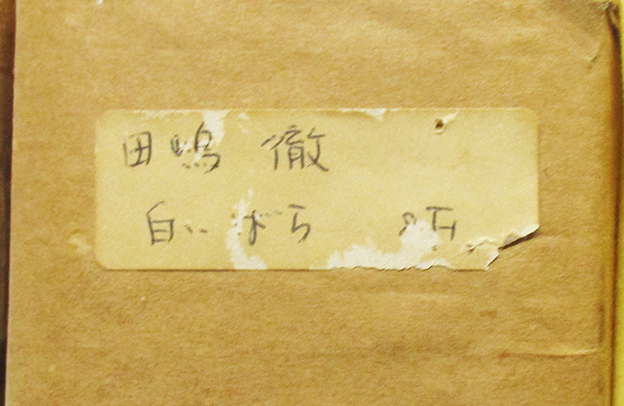 田嶋 徹
白いばら 8号